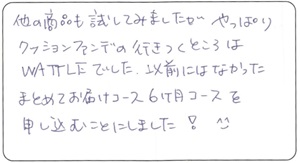 他の商品も試してみましたが やっぱり
クッションファンデの行きつくところは
WATTLEでした。以前にはなかった
まとめてお届けコース 6ヶ月コースを
申し込むことにしました!